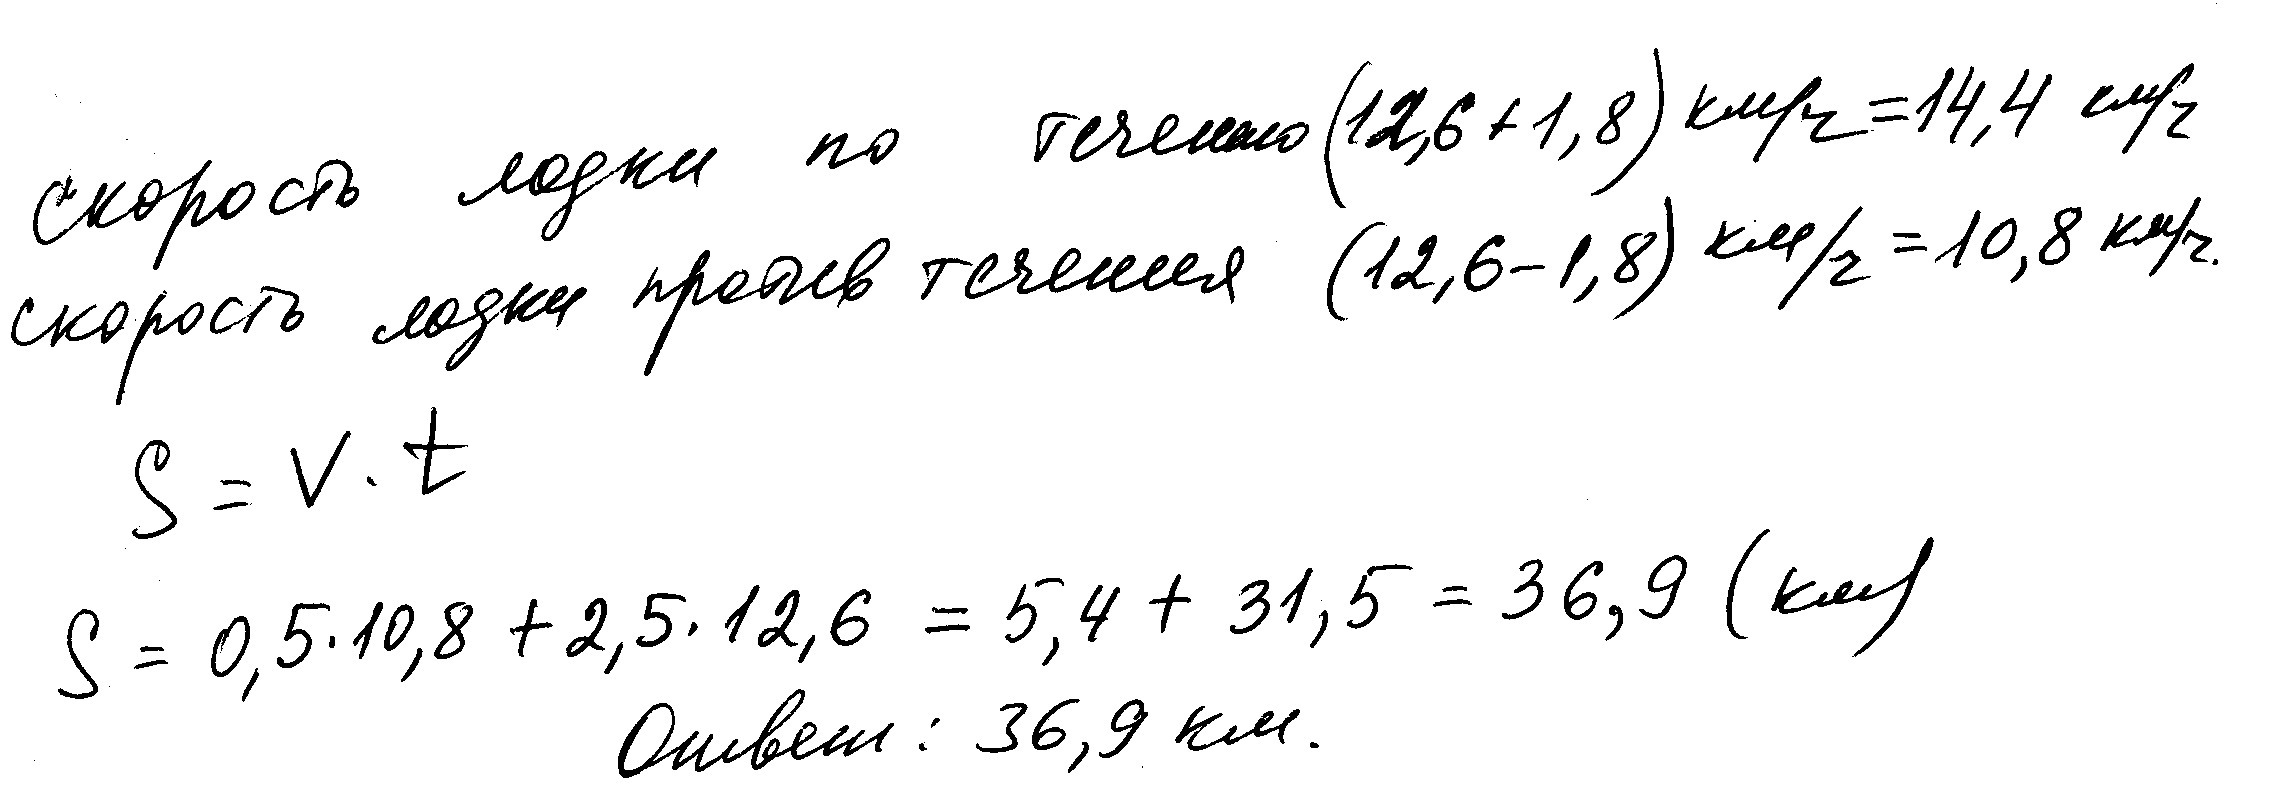 скорость лодки по течению (12,6 + 1,8) км/ч = 14,4 км/ч
скорость лодки против течения (12,6 - 1,8) км/ч = 10,8 км/ч.
S = V · t
S = 0,5 · 10,8 + 2,5 · 12,6 = 5,4 + 31,5 = 36,9 (км)
Ответ: 36,9 км.